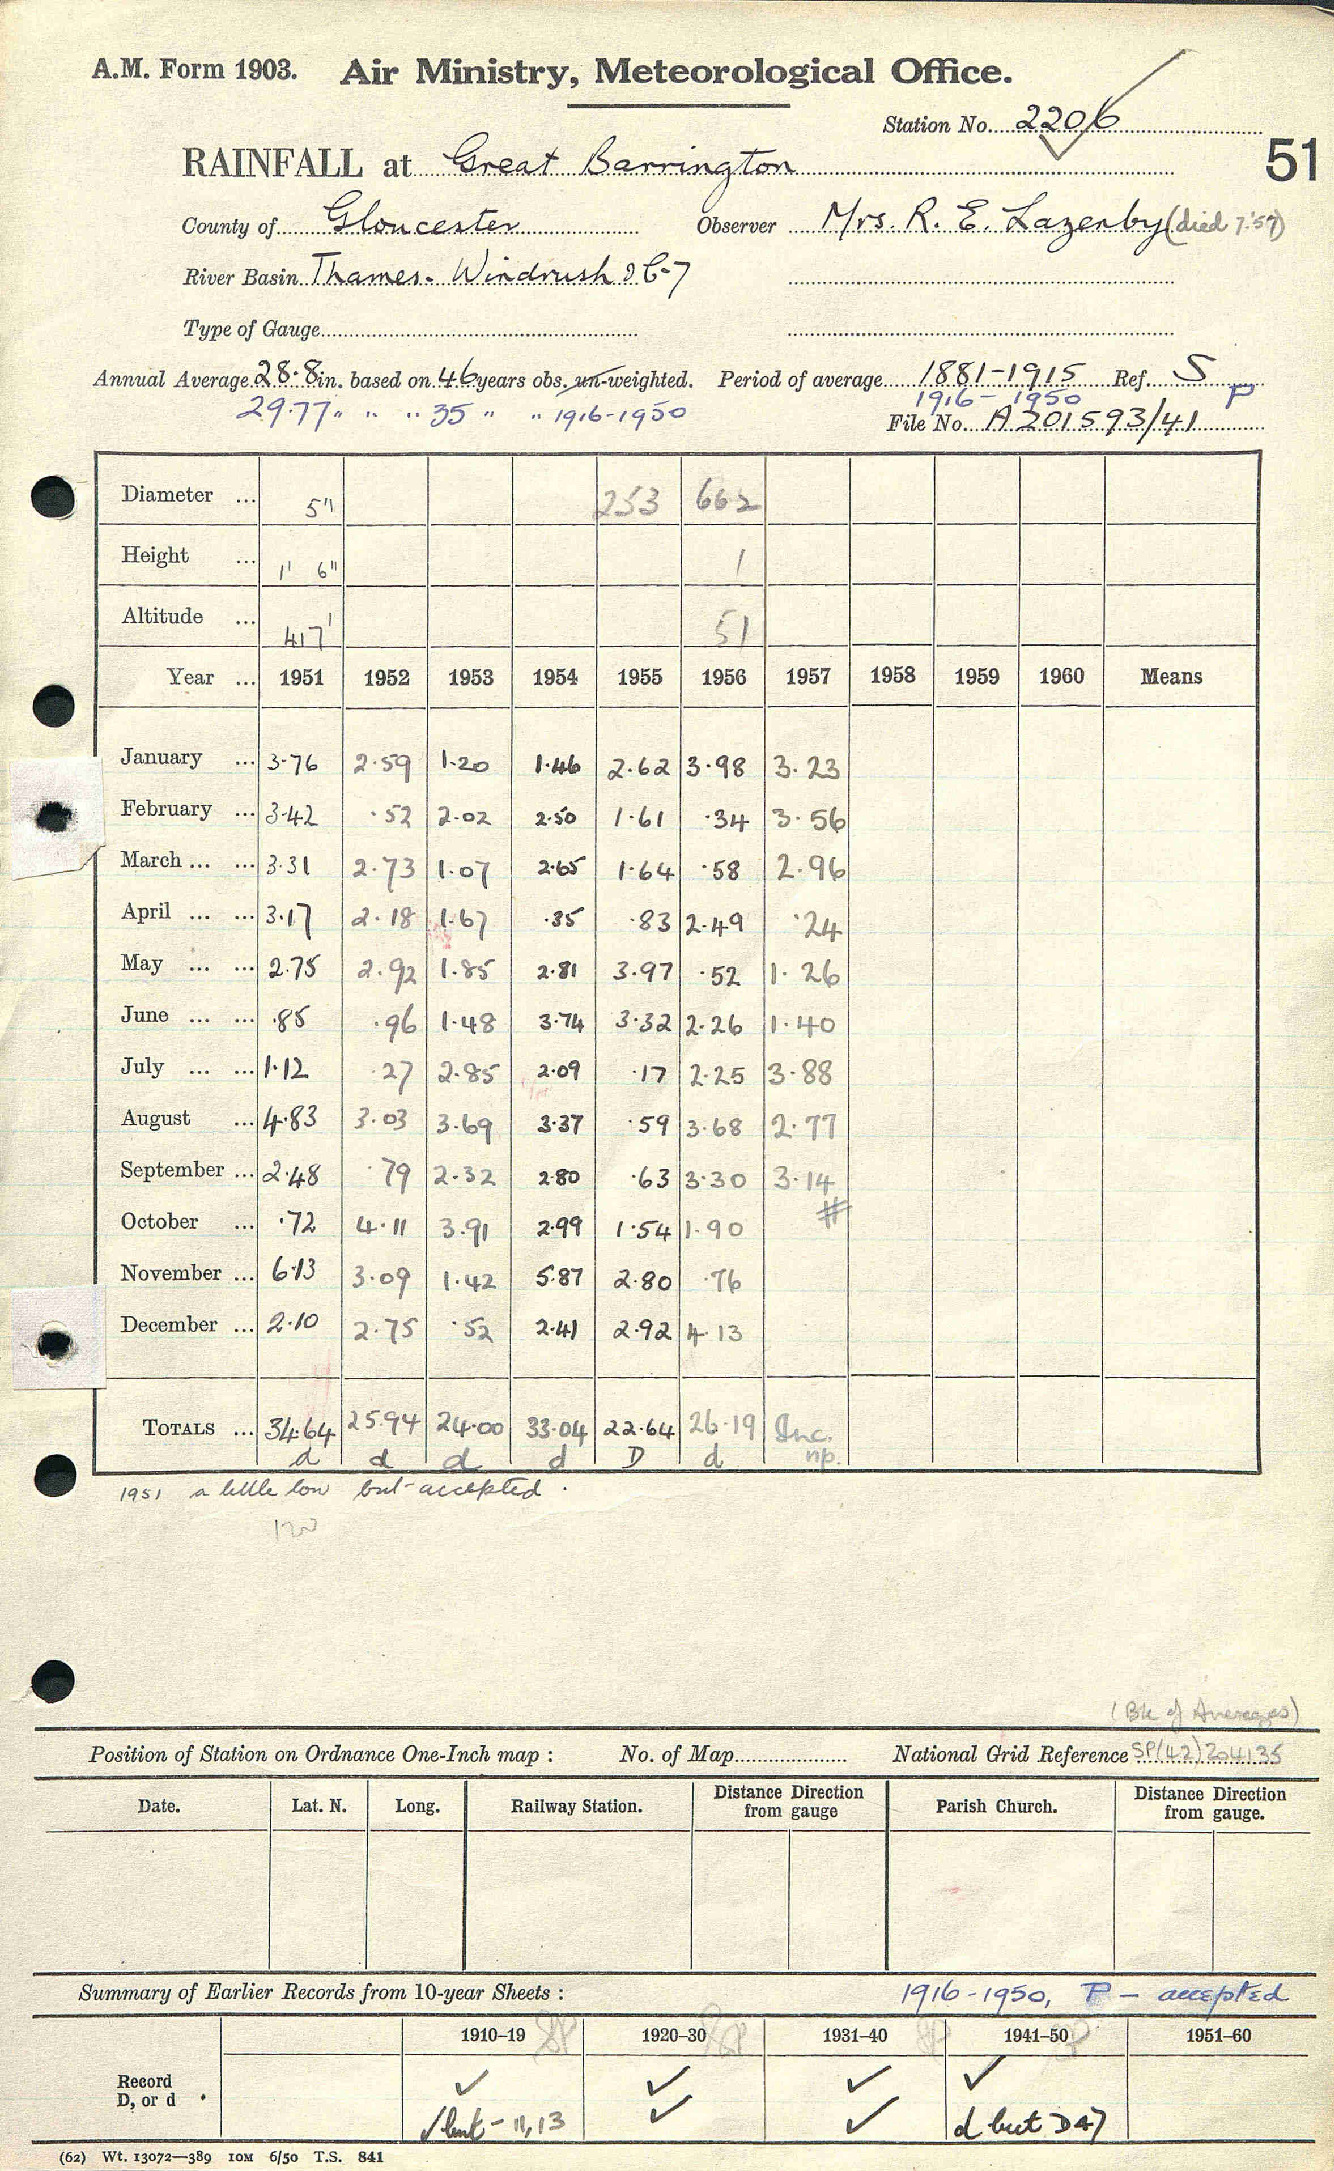 A.M. Form 1903. Air Ministry, Meteorological Office.
Station No. 2206
51
RAINFALL at Great Barrington
County of Gloucester Observer Mrs. R. E. Lazenby (died 7.'57)
River Basin Thames. Windrush 8C-7
Type of Gauge
Annual Average 28.8 in. based on 46 years obs. un-weighted. Period of average 1881-1915 Ref. S
29.77 " " " 35 " " 1916-1950 1916-1950 P
File No. A201593/41
Diameter ... 5" 253 662
Height ... 1' 6" 1
Altitude ... 417' 51
Year ... 1951 1952 1953 1954 1955 1956 1957 1958 1959 1960 Means
January ... 3.76 2.59 1.20 1.46 2.62 3.98 3.23
February ... 3.42 .52 2.02 2.50 1.61 .34 3.56
March ... ... 3.31 2.73 1.07 2.65 1.64 .58 2.96
April ... ... 3.17 2.18 1.67 .35 .83 2.49 .24
May ... ... 2.75 2.92 1.85 2.81 3.97 .52 1.26
June ... ... .85 .96 1.48 3.74 3.32 2.26 1.40
July ... ... 1.12 .27 2.85 2.09 .17 2.25 3.88
August ... 4.83 3.03 3.69 3.37 .59 3.68 2.77
September ... 2.48 .79 2.32 2.80 .63 3.30 3.14
October ... .72 4.11 3.91 2.99 1.54 1.90 #
November ... 6.13 3.09 1.42 5.87 2.80 .76
December ... 2.10 2.75 .52 2.41 2.92 4.13
TOTALS ... 34.64 25.94 24.00 33.04 22.64 26.19 Inc.
d d d d D d np.
1951 a little low but accepted.
(Bk of Averages)
Position of Station on Ordnance One-Inch map : No. of Map National Grid Reference SP(42)204135
Date. Lat. N. Long. Railway Station. Distance Direction from gauge Parish Church. Distance Direction from gauge.
Summary of Earlier Records from 10-year Sheets : 1916-1950, P - accepted
1910-19 1920-30 1931-40 1941-50 1951-60
Record ✓ ✓ ✓ ✓
D, or d ✓ but - 11,13 ✓ ✓ d but D 47
(62) Wt. 13072—389 IOM 6/50 T.S. 841